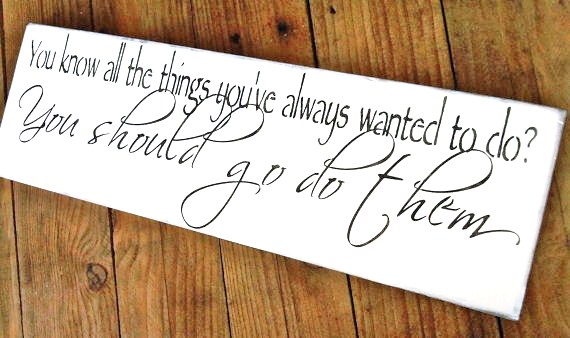 You know all the things you've always wanted to do?
You should go do them